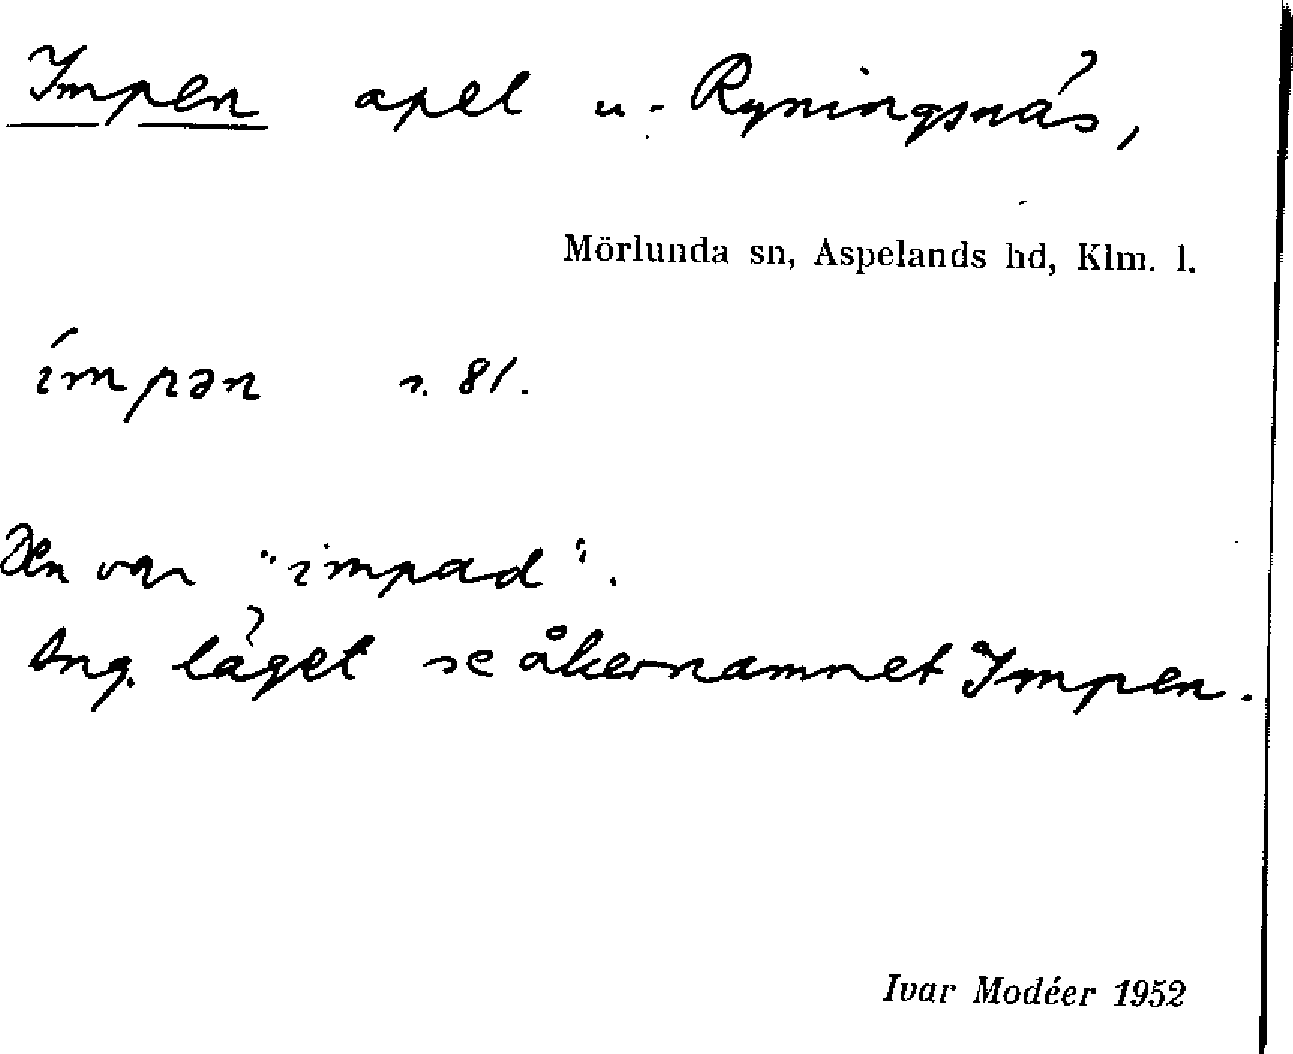 Impen apel u. Ryningsnäs,
Mörlunda sn, Aspelands hd, Klm. l.
ímpən s. 81.
Den var "impad".
Ang. läget se åkernamnet Impen.
Ivar Modéer 1952